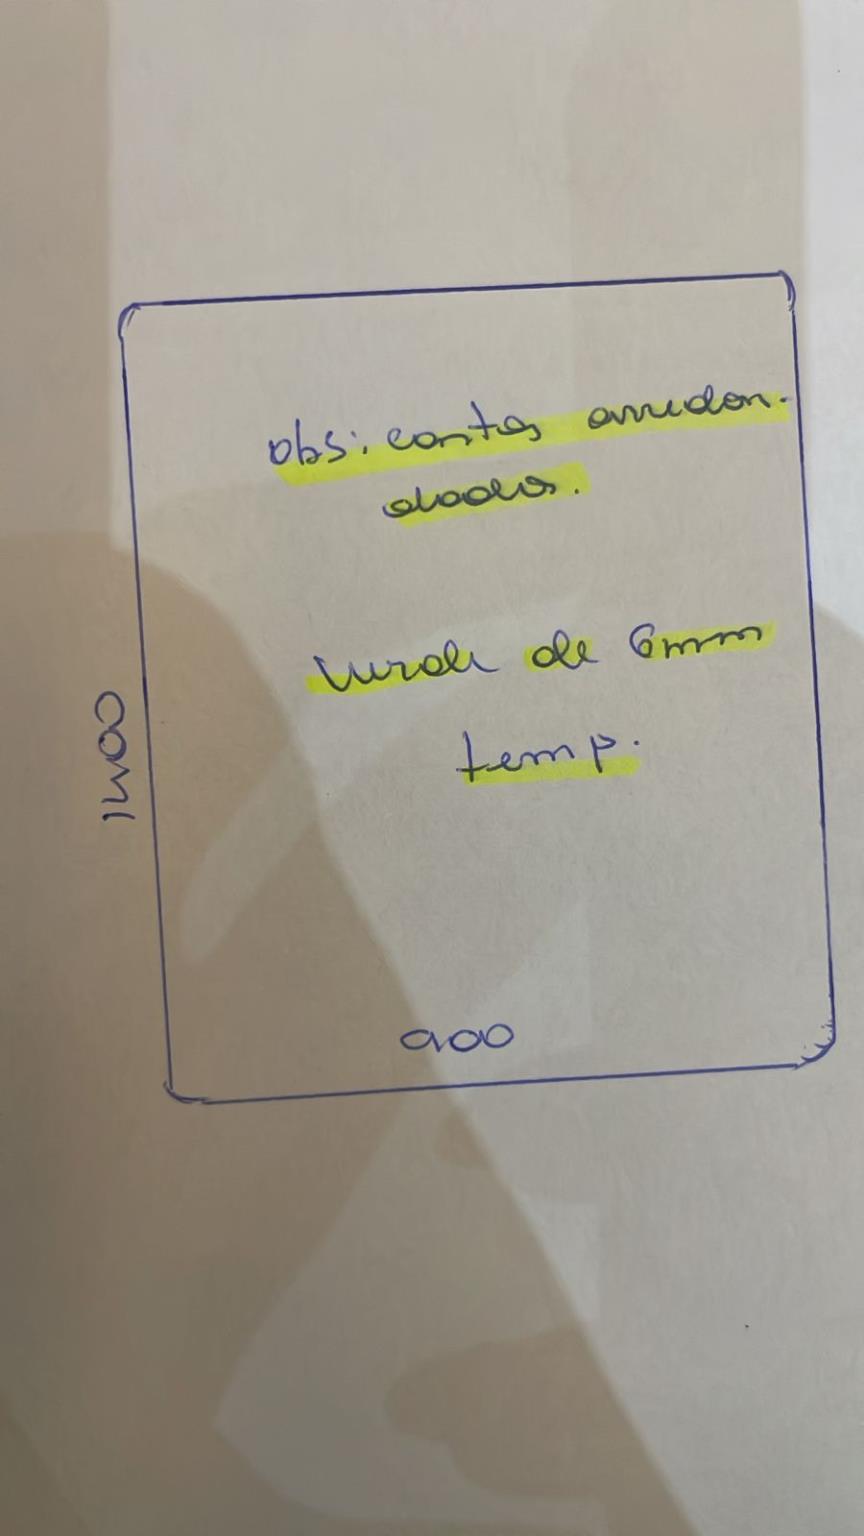 obs: cantos arredon-
dados.
verde de 6mm
temp.
900